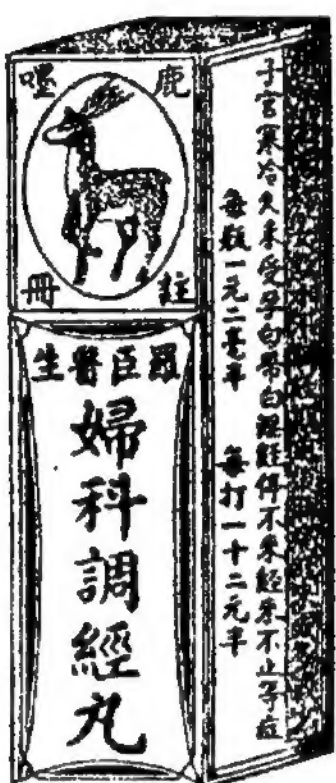 鹿嘜
註冊
羅臣醫生
婦科調經丸
子宮寒冷久未受孕白帶白淫經停不來經來不止等症
每瓶一元二毫半　每打一十二元半